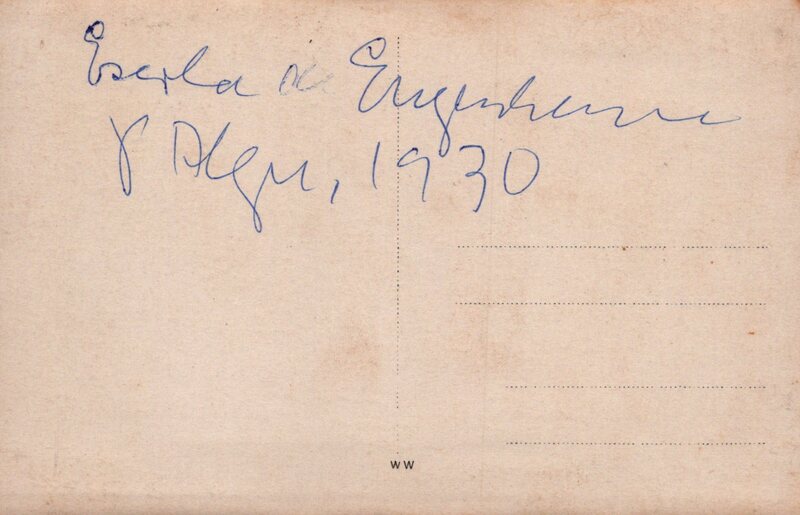 Escola de Engenharia
P Alegre, 1930
WW